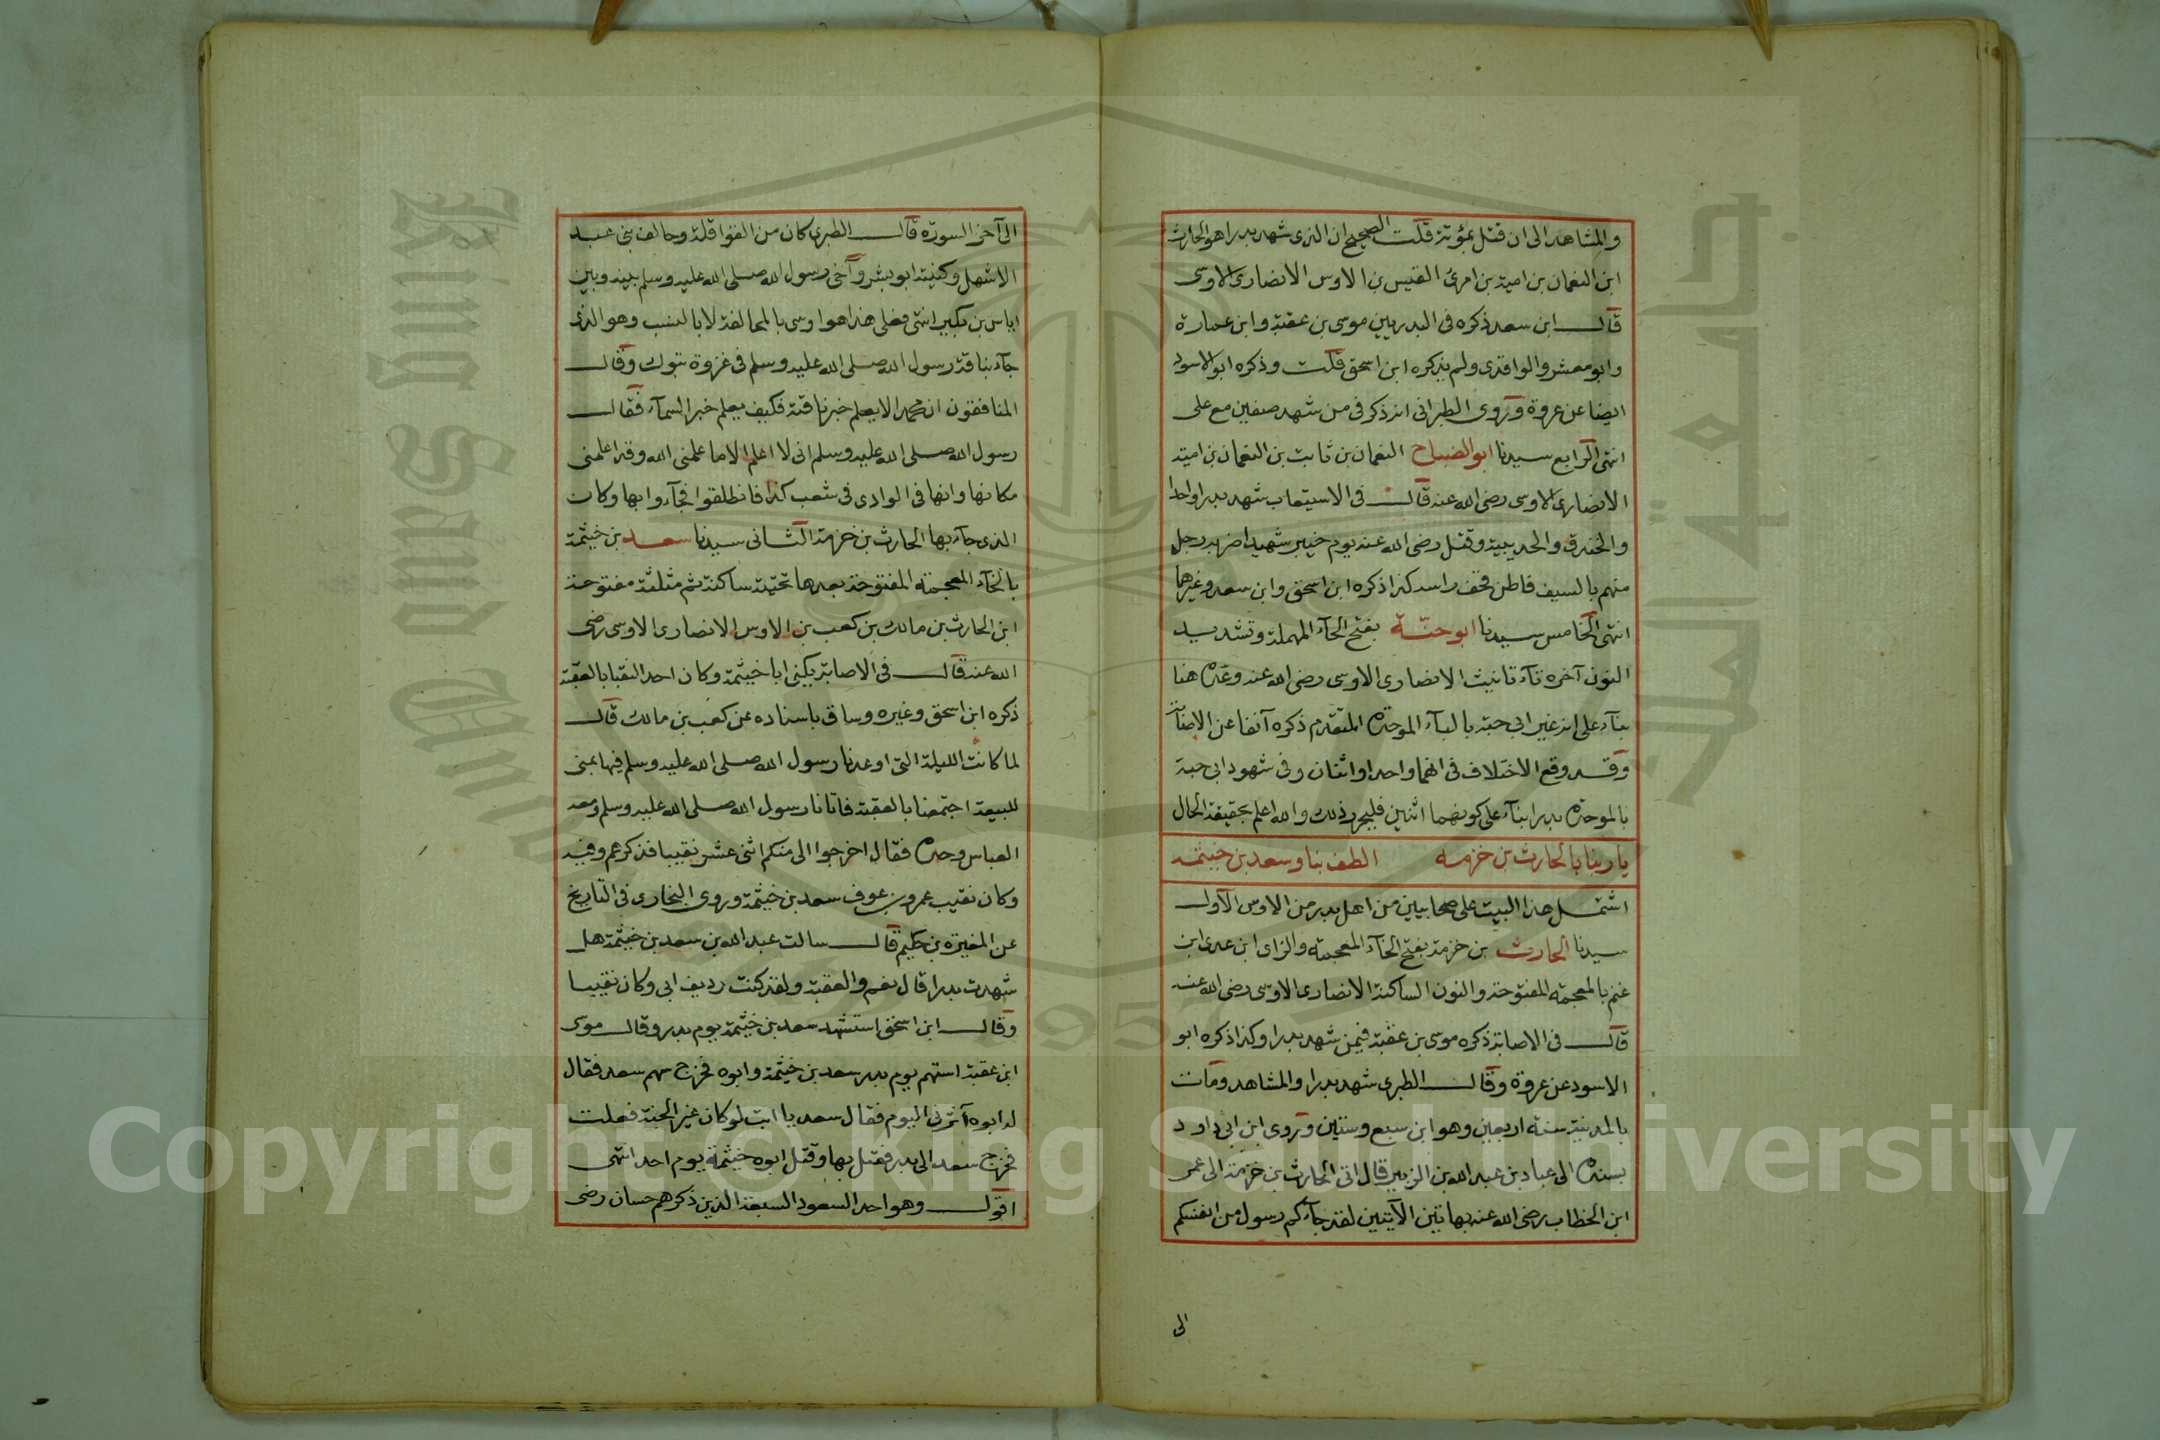 والمشاهد الى ان قتل بمؤتة قلت الصحيح ان الذى شهد بدرا هو الحارث
ابن النعمان بن امية بن امرئ القيس بن الاوس الانصارى الاوسى
قال ابن سعد ذكره فى البدريين موسى بن عقبة وابن عمارة
وابو معشر والواقدى ولم يذكره ابن اسحق قلت وذكره ابو الاسود
ايضا عن عروة وروى الطبرانى انه ذكر فى من شهد صفين مع على
انتهى الرابع سيدنا ابو الضياح النعمان بن ثابت بن النعمان بن امية
الانصارى الاوسى رضى الله عنه قال فى الاستيعاب شهد بدرا واحدا
والخندق والحديبية وقتل رضى الله عنه يوم خيبر شهيدا ضربه رجل
منهم بالسيف فاطن قحف راسه كذا ذكره ابن اسحق وابن سعد وغيرهما
انتهى الخامس سيدنا ابو حنة بفتح الحاء المهملة وتشديد
النون آخره تاء تانيث الانصارى الاوسى رضى الله عنه وعده هنا
بناء على انه غير ابى حبة بالباء الموحدة المتقدم ذكره آنفا عن الاصابة
وقد وقع الاختلاف فى انهما واحد او اثنان وفى شهود ابى حبة
بالموحدة بدرا بناء على كونهما اثنين فليحرر ذلك والله اعلم بحقيقة الحال
يا ربنا بالحارث بن خزمه الطف بنا وسعد بن خيثمه
اشتمل هذا البيت على صحابيين من اهل بدر من الاوس الاول
سيدنا الحارث بن خزمة بفتح الخاء المعجمة والزاى ابن عدى ابن
غنم بالمعجمة المفتوحة والنون الساكنة الانصارى الاوسى رضى الله عنه
قال فى الاصابة ذكره موسى بن عقبة فيمن شهد بدرا وكذا ذكره ابو
الاسود عن عروة وقال الطبرى شهد بدرا والمشاهد ومات
بالمدينة سنة اربعين وهو ابن سبع وستين وروى ابن ابى داود
بسنده الى عباد بن عبد الله بن الزبير قال اتى الحارث بن خزمة الى عمر
ابن الخطاب رضى الله عنه بهاتين الآيتين لقد جاءكم رسول من انفسكم
الى
الى آخر السورة قال الطبرى كان من القواقلة وحالف بنى عبد
الاشهل وكنيته ابو بشر وآخى رسول الله صلى الله عليه وسلم بينه وبين
اياس بن بكير انتهى فعلى هذا هو اوسى بالمحالفة لا بالنسب وهو الذى
جاء بناقة رسول الله صلى الله عليه وسلم فى غزوة تبوك وقال
المنافقون ان محمدا لا يعلم خبر ناقته فكيف يعلم خبر السماء فقال
رسول الله صلى الله عليه وسلم انى لا اعلم الا ما علمنى الله وقد اعلمنى
مكانها وانها فى الوادى فى شعب كذا فانطلقوا فجاءوا بها وكان
الذى جاء بها الحارث بن خزمة الثانى سيدنا سعد بن خيثمة
بالخاء المعجمة المفتوحة بعدها تحتية ساكنة ثم مثلثة مفتوحة
ابن الحارث بن مالك بن كعب بن الاوس الانصارى الاوسى رضى
الله عنه قال فى الاصابة يكنى ابا خيثمة وكان احد النقبا بالعقبة
ذكره ابن اسحق وغيره وساق باسناده عن كعب بن مالك قال
لما كانت الليلة التى اوعدنا رسول الله صلى الله عليه وسلم فيها بمنى
للبيعة اجتمعنا بالعقبة فاتانا رسول الله صلى الله عليه وسلم ومعه
العباس وحده فقال اخرجوا الى منكم اثنى عشر نقيبا فذكرهم وفيه
وكان نقيب عمرو بن عوف سعد بن خيثمة وروى البخارى فى التاريخ
عن المغيرة بن حكيم قال سالت عبد الله بن سعد بن خيثمة هل
شهدت بدرا قال نعم والعقبة ولقد كنت رديف ابى وكان نقيبا
وقال ابن اسحق استشهد سعد بن خيثمة يوم بدر وقال موسى
ابن عقبة استهم يوم بدر سعد بن خيثمة وابوه فخرج سهم سعد فقال
له ابوه آثرنى اليوم فقال سعد يا ابت لو كان غير الجنة فعلت
فخرج سعد الى بدر فقتل بها وقتل ابوه خيثمة يوم احد انتهى
اقول وهو احد السعود السبعة الذين ذكرهم حسان رضى
Copyright © King Saud University
King Saud University
جامعة الملك سعود